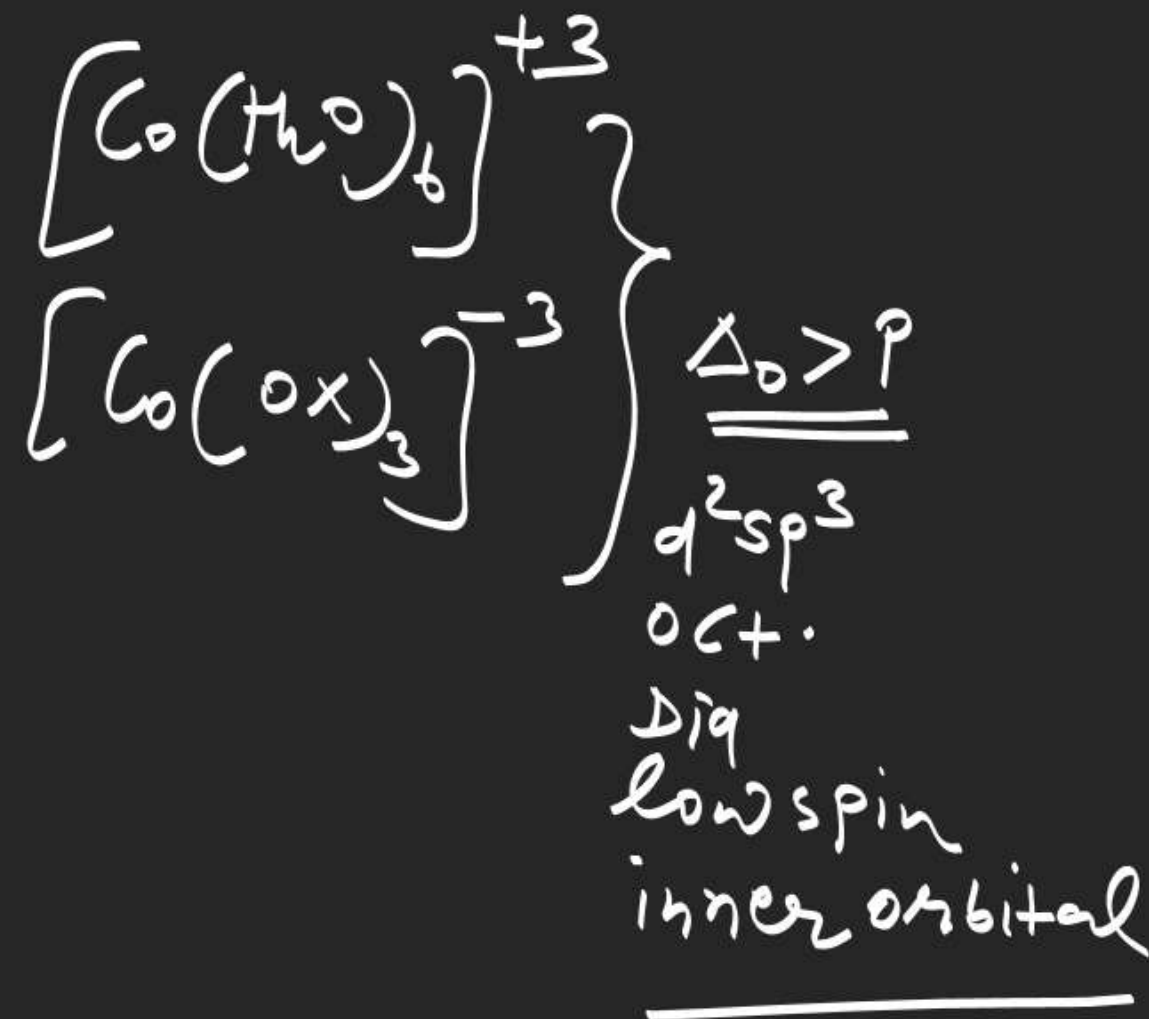 [Co(H₂O)₆]⁺³
[Co(ox)₃]⁻³
Δ₀ > P
d²sp³
oct.
Dia
low spin
inner orbital